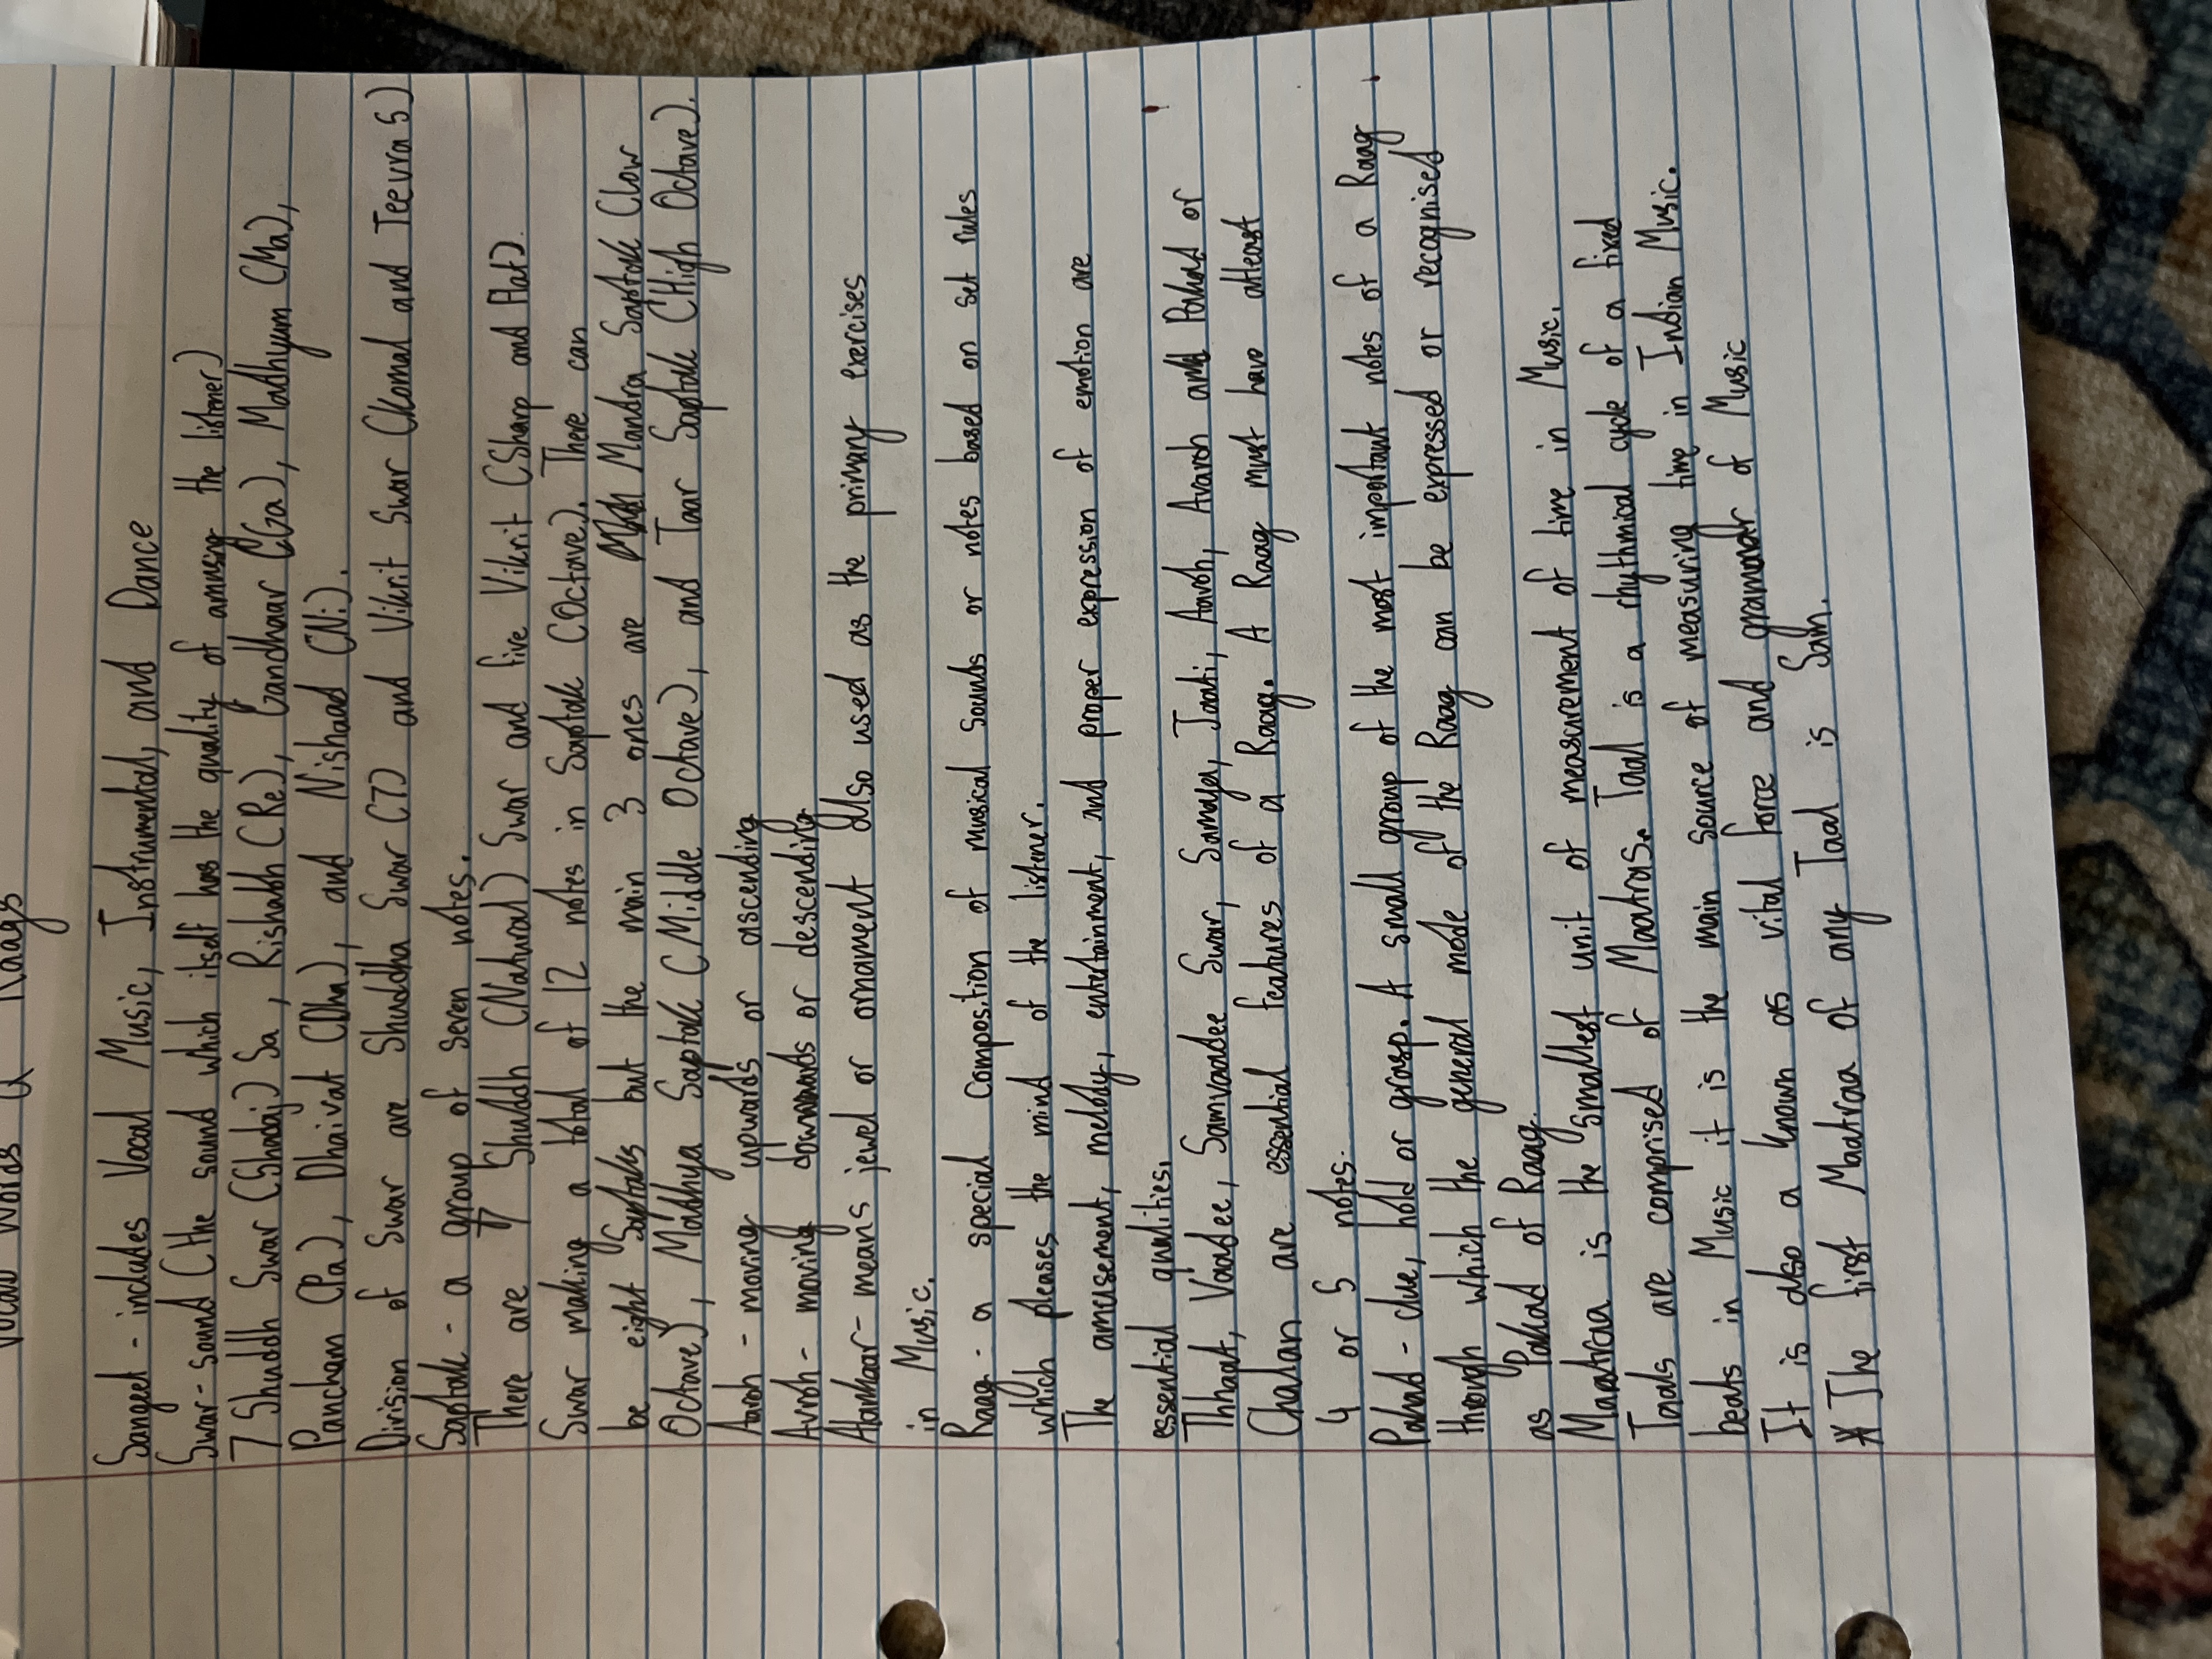 Vocab Words & Raags
Sangeet - includes Vocal Music, Instrumental, and Dance
Swar - sound (the sound which itself has the quality of amusing the listener)
7 Shuddh Swar (Shadaj) Sa, Rishabh (Re), Gandhaar (Ga), Madhyum (Ma),
Pancham (Pa), Dhaivat (Dha), and Nishaad (Ni).
Division of Swar are Shuddha Swar (7) and Vikrit Swar (Komal and Teevra 5)
Saptak - a group of seven notes.
There are 7 Shuddh (Natural) Swar and five Vikrit (Sharp and flat)
Swar making a total of 12 notes in Saptak (Octave). There can
be eight Saptaks but the main 3 ones are Mandra Saptak (low
Octave), Madhya Saptak (Middle Octave), and Taar Saptak (High Octave).
Aaroh - moving upwards or ascending
Avroh - moving downwards or descending
Alankaar - means jewel or ornament also used as the primary exercises
in Music.
Raag - a special composition of musical sounds or notes based on set rules
which pleases the mind of the listener.
The amusement, melody, entertainment, and proper expression of emotion are
essential qualities.
Thhaat, Vaadee, Samvaadee Swar, Samay, Jaati, Aaroh, Avaroh and Pakad or
Chalan are essential features of a Raag. A Raag must have atleast
4 or 5 notes.
Pakad - clue, hold or grasp. A small group of the most important notes of a Raag
through which the general mode of the Raag can be expressed or recognised
as Pakad of Raag.
Maatraa is the smallest unit of measurement of time in Music.
Taals are comprised of Maatras. Taal is a rhythmical cycle of a fixed
beats in Music it is the main source of measuring time in Indian Music.
It is also a known as vital force and grammar of Music
* The first Maatraa of any Taal is Sam.